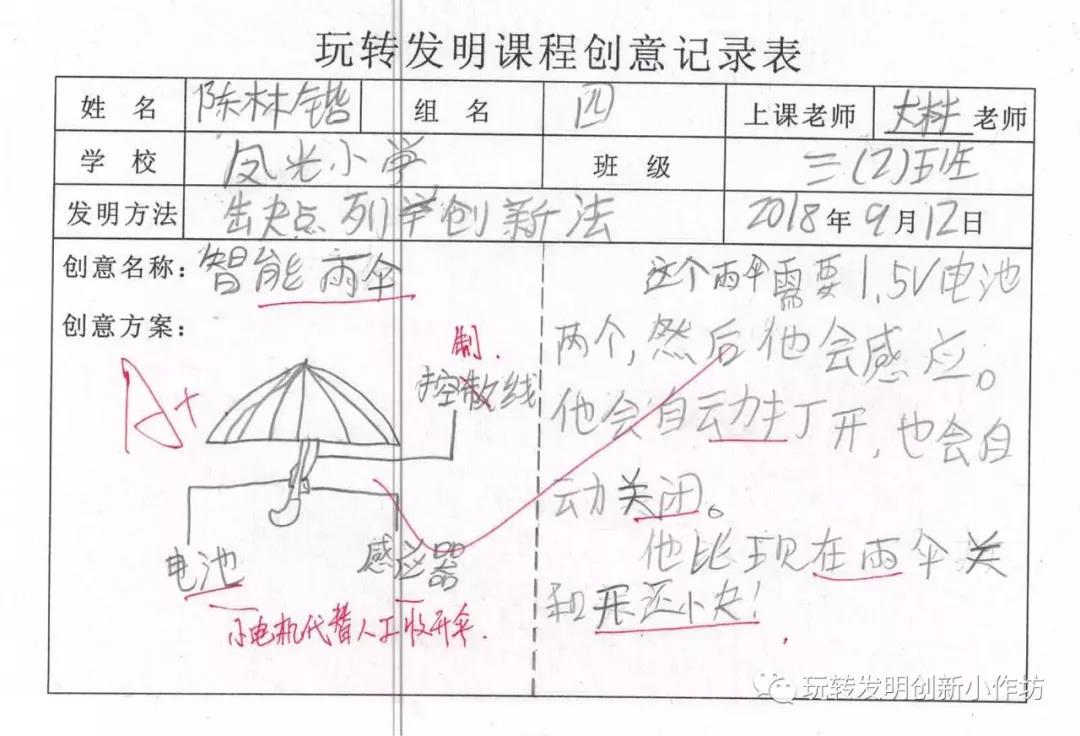 玩转发明课程创意记录表
姓 名 陈林锴 组 名 四 上课老师 大林 老师
学 校 凤光小学 班 级 三(2)班
发明方法 缺点列举创新法 2018年9月12日
创意名称：智能雨伞
创意方案：
A+
制.
控散线
电池
感应器
小电机代替人工收开伞.
这个雨伞需要1.5V电池
两个,然后他会感应。
他会自动打开,也会自
动关闭。
他比现在雨伞关
和开还小夬!
玩转发明创新小作坊